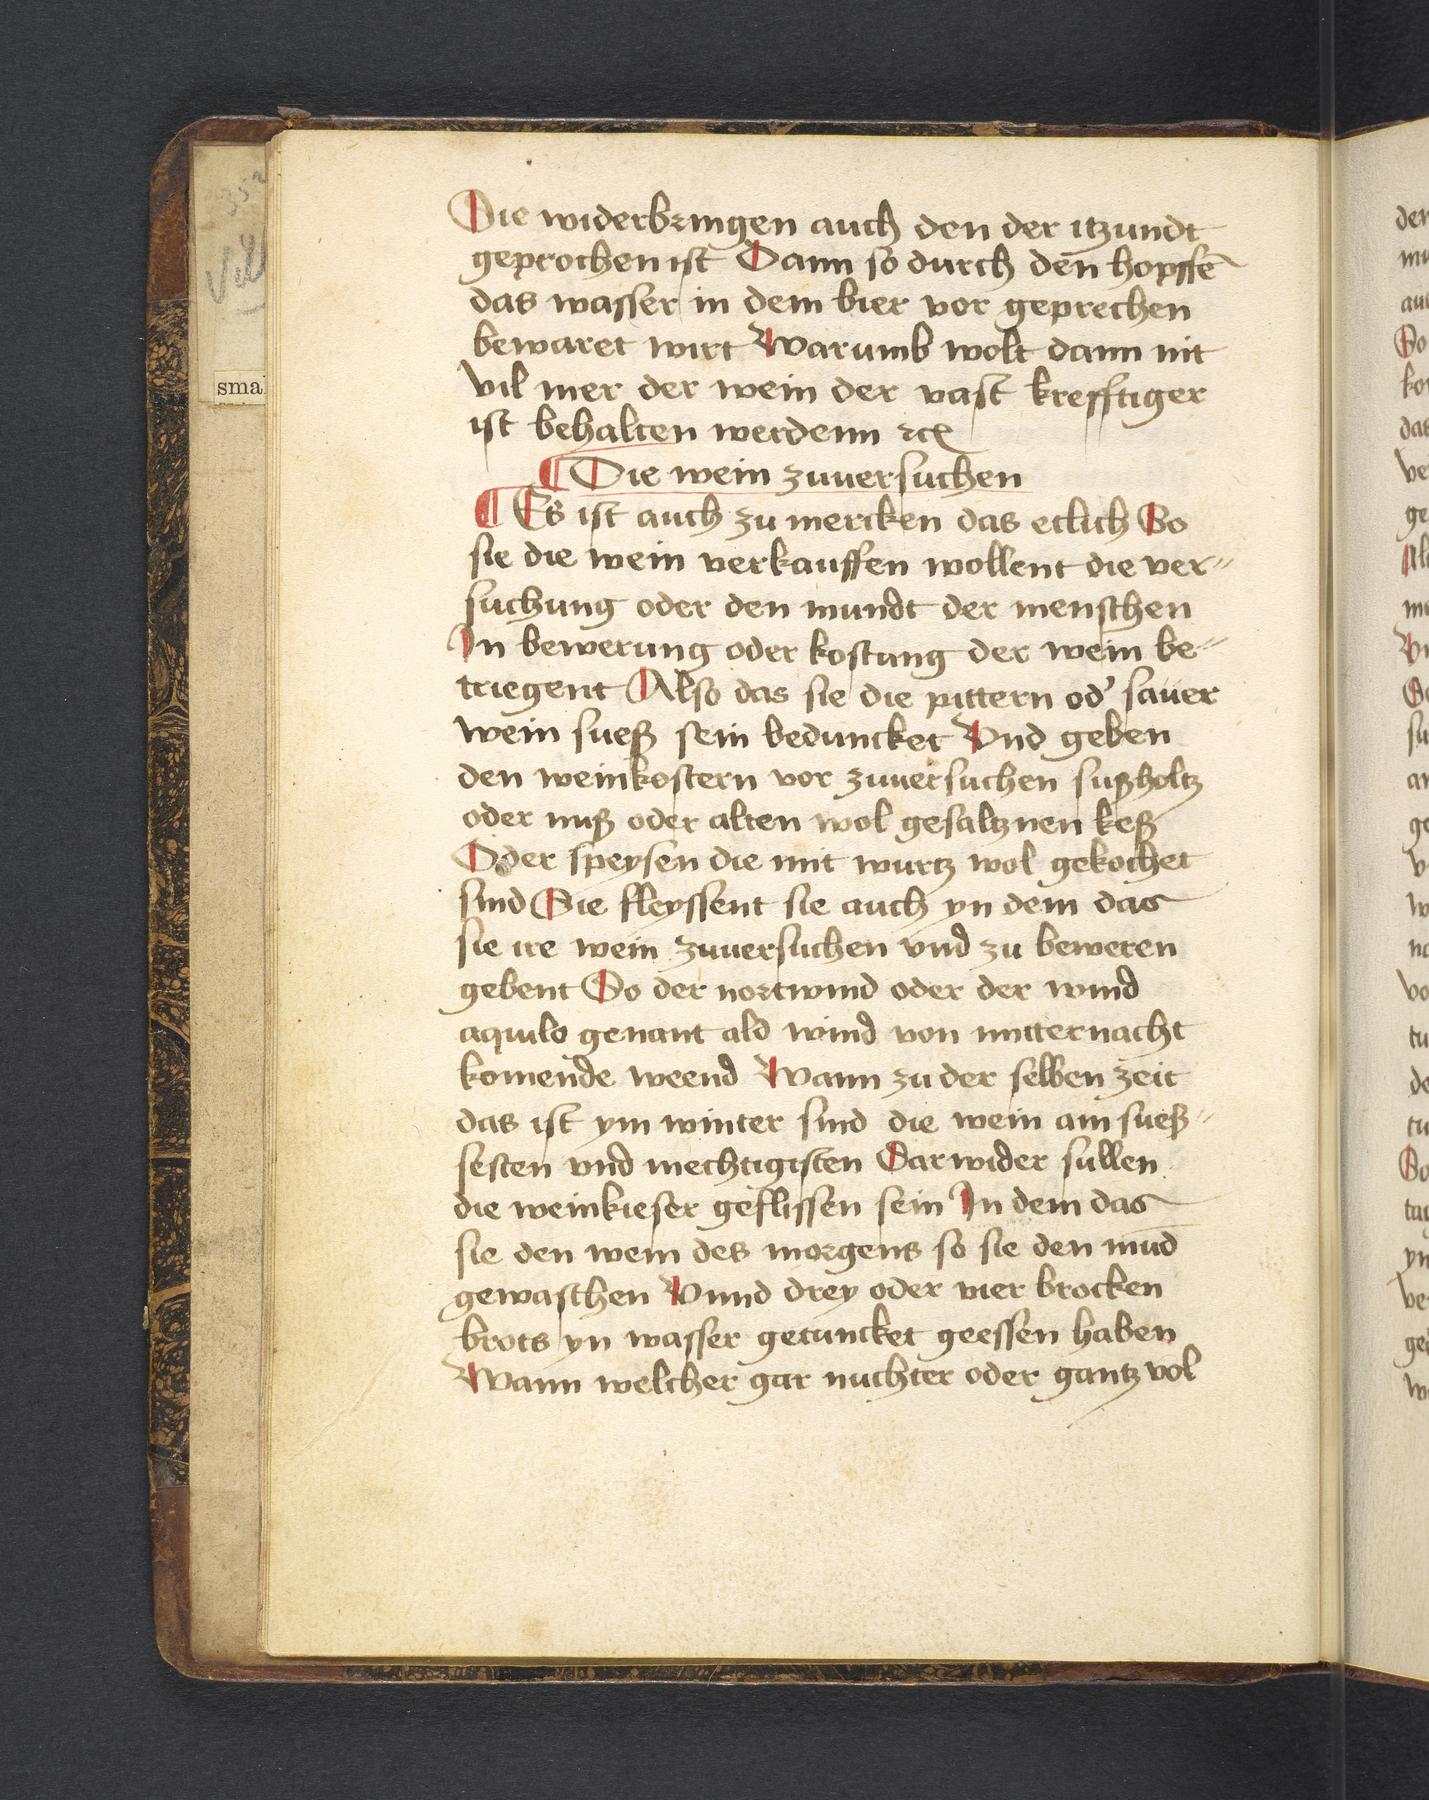 Die widerbringen auch den der itzundt
geprochen ist Dann so durch den hopffē
das wasser in dem bier vor geprechen
bewaret wirt Warumb wolt dann nit
vil mer der wein der vast krefftiger
ist behalten werdenn ꝛc
¶ Die wein zuuersuchen
¶ Es ist auch zu mercken das etlich So
sie die wein verkauffen wollent die ver⸗
suchung oder den mundt der menschen
In bewerung oder kostung der wein be⸗
triegent Also das sie die pittern od’ sauer
wein sueß sein beduncket Vnd geben
den weinkostern vor zuuersuchen sußholtz
oder nuß oder alten wol gesaltznen keß
Oder speysen die mit wurtz wol gekochet
sind Sie fleyssent sie auch yn dem das
sie ire wein zuuersuchen vnd zu beweren
gebent So der nortwind oder der wind
aquilo genant ald wind von mitternacht
komende weend Wann zu der selben zeit
das ist ym winter sind die wein am sueß⸗
sesten vnd mechtigisten Darwider sullen
die weinkieser geflissen sein In dem das
sie den wein des morgens so sie den mūd
gewaschen Vnnd drey oder vier brocken
brots yn wasser getuncket geessen haben
Wann welcher gar nuchter oder gantz vol